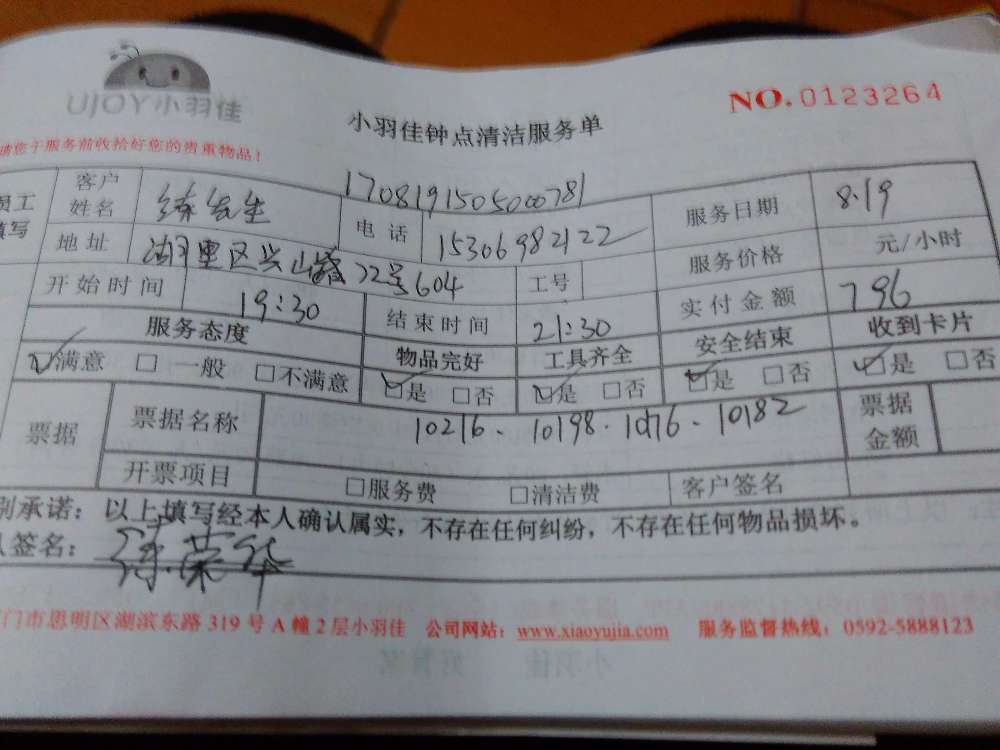 UJOY小羽佳
NO.0123264
小羽佳钟点清洁服务单
请您于服务前收拾好您的贵重物品!
170819150500781
员工填写 客户姓名 练先生 电话 15306982122 服务日期 8.19
地址 湖里区兴山路72号604 工号 服务价格 元/小时
开始时间 19:30 结束时间 21:30 实付金额 796
服务态度 物品完好 工具齐全 安全结束 收到卡片
☑满意 □一般 □不满意 ☑是 □否 ☑是 □否 ☑是 □否 ☑是 □否
票据 票据名称 10216、10198.10176、10182 票据金额
开票项目 □服务费 □清洁费 客户签名
别承诺:以上填写经本人确认属实,不存在任何纠纷,不存在任何物品损坏。
人签名: 荣华
门市思明区湖滨东路319号A幢2层小羽佳 公司网站:www.xiaoyujia.com 服务监督热线:0592-5888123